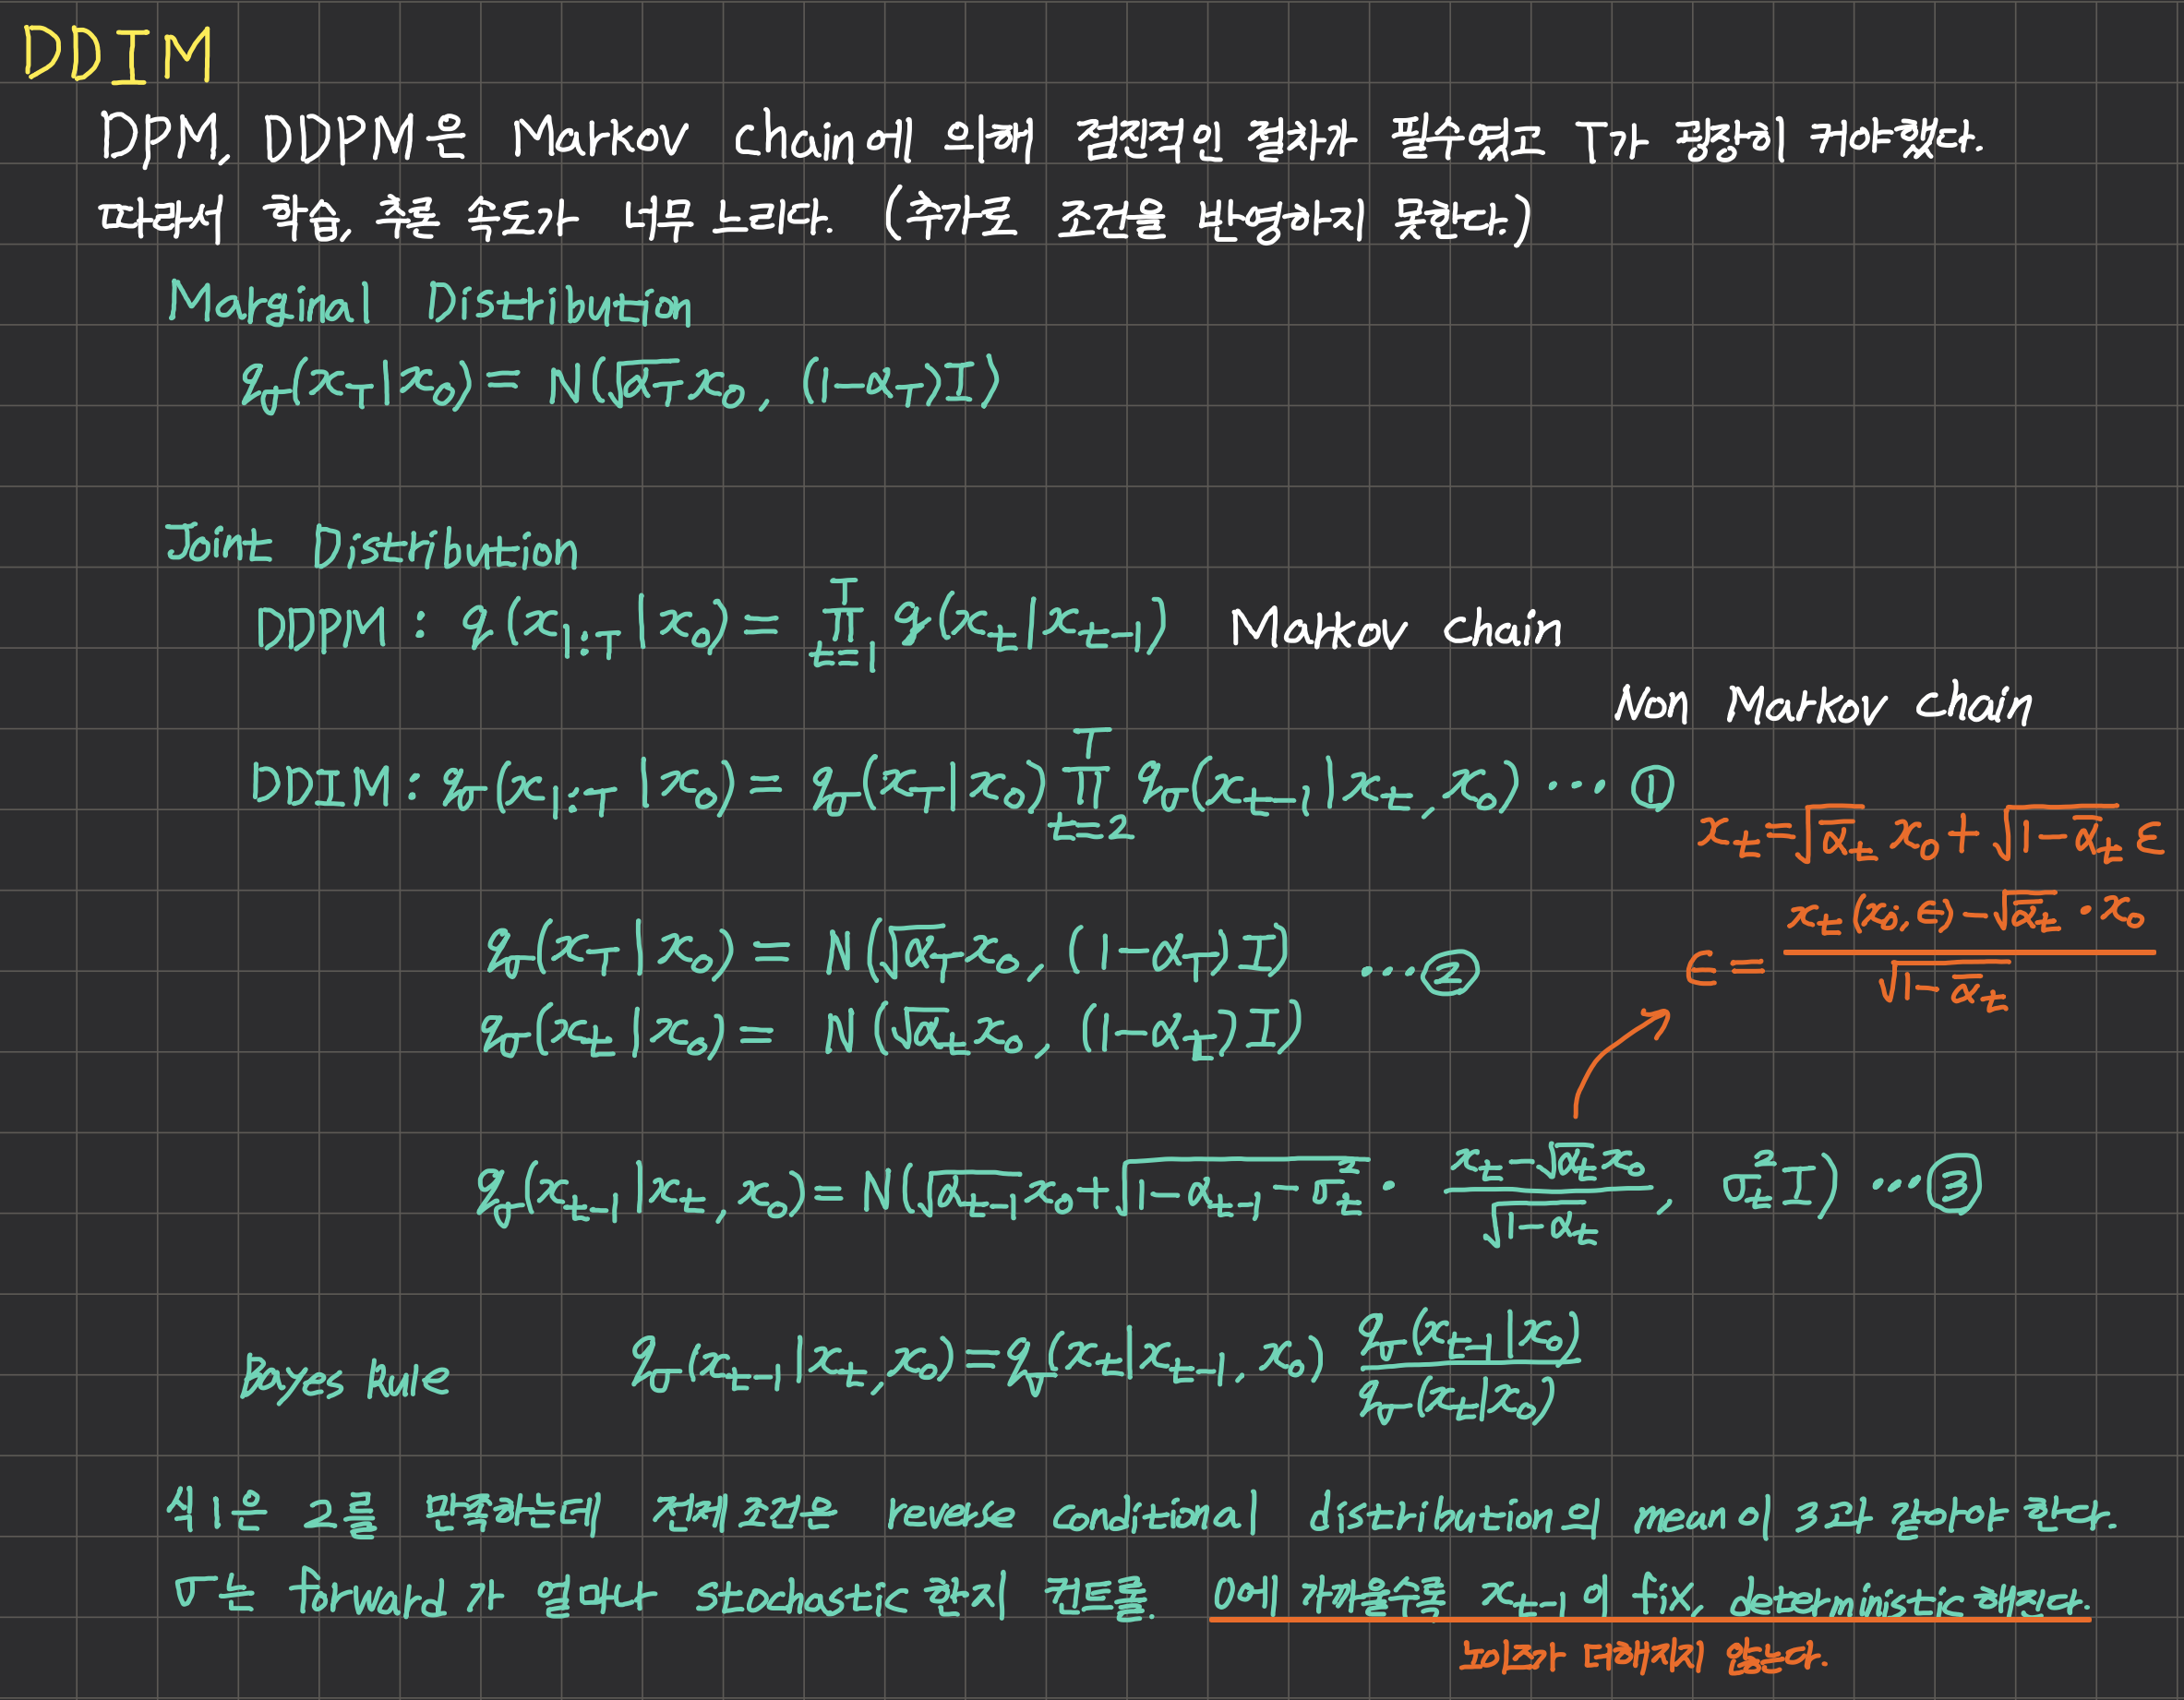 DDIM
DPM, DDPM은 Markov chain에 의해 점진적인 절차가 필수였고 T가 굉장히 커야했다.
따라서 학습, 추론 속도가 너무 느리다. (추가로 조건을 반영하지 못한다.)
Marginal Distribution
q_σ(x_T|x_0) = N(√α_T x_0, (1-α_T)I)
Joint Distribution
DDPM : q(x_{1:T}|x_0) = ∏_{t=1}^{T} q(x_t|x_{t-1}) Markov chain
Non Markov chain
DDIM : q_σ(x_{1:T}|x_0) = q_σ(x_T|x_0) ∏_{t=2}^{T} q_σ(x_{t-1}|x_t, x_0) ... ①
x_t = √ᾱ_t x_0 + √(1-ᾱ_t) ε
q_σ(x_T|x_0) = N(√α_T x_0, (1-α_T)I) ... ②
ε = (x_t(x_0, ε) - √ᾱ_t · x_0) / √(1-ᾱ_t)
q_σ(x_t|x_0) = N(√α_t x_0, (1-α_t)I)
q_σ(x_{t-1}|x_t, x_0) = N(√α_{t-1} x_0 + √(1-α_{t-1}-σ_t^2) · (x_t - √α_t x_0) / √(1-α_t), σ_t^2 I) ... ③
Bayes Rule q_σ(x_{t-1}|x_t, x_0) = q_σ(x_t|x_{t-1}, x_0) q_σ(x_{t-1}|x_0) / q_σ(x_t|x_0)
식1은 2를 만족하는데 전제조건은 reverse conditional distribution의 mean이 3과 같아야 한다.
σ는 forward가 얼마나 stochastic한지 컨트롤. 0에 가까울수록 x_{t-1}이 fix, deterministic해진다.
노이즈가 더해지지 않는다.